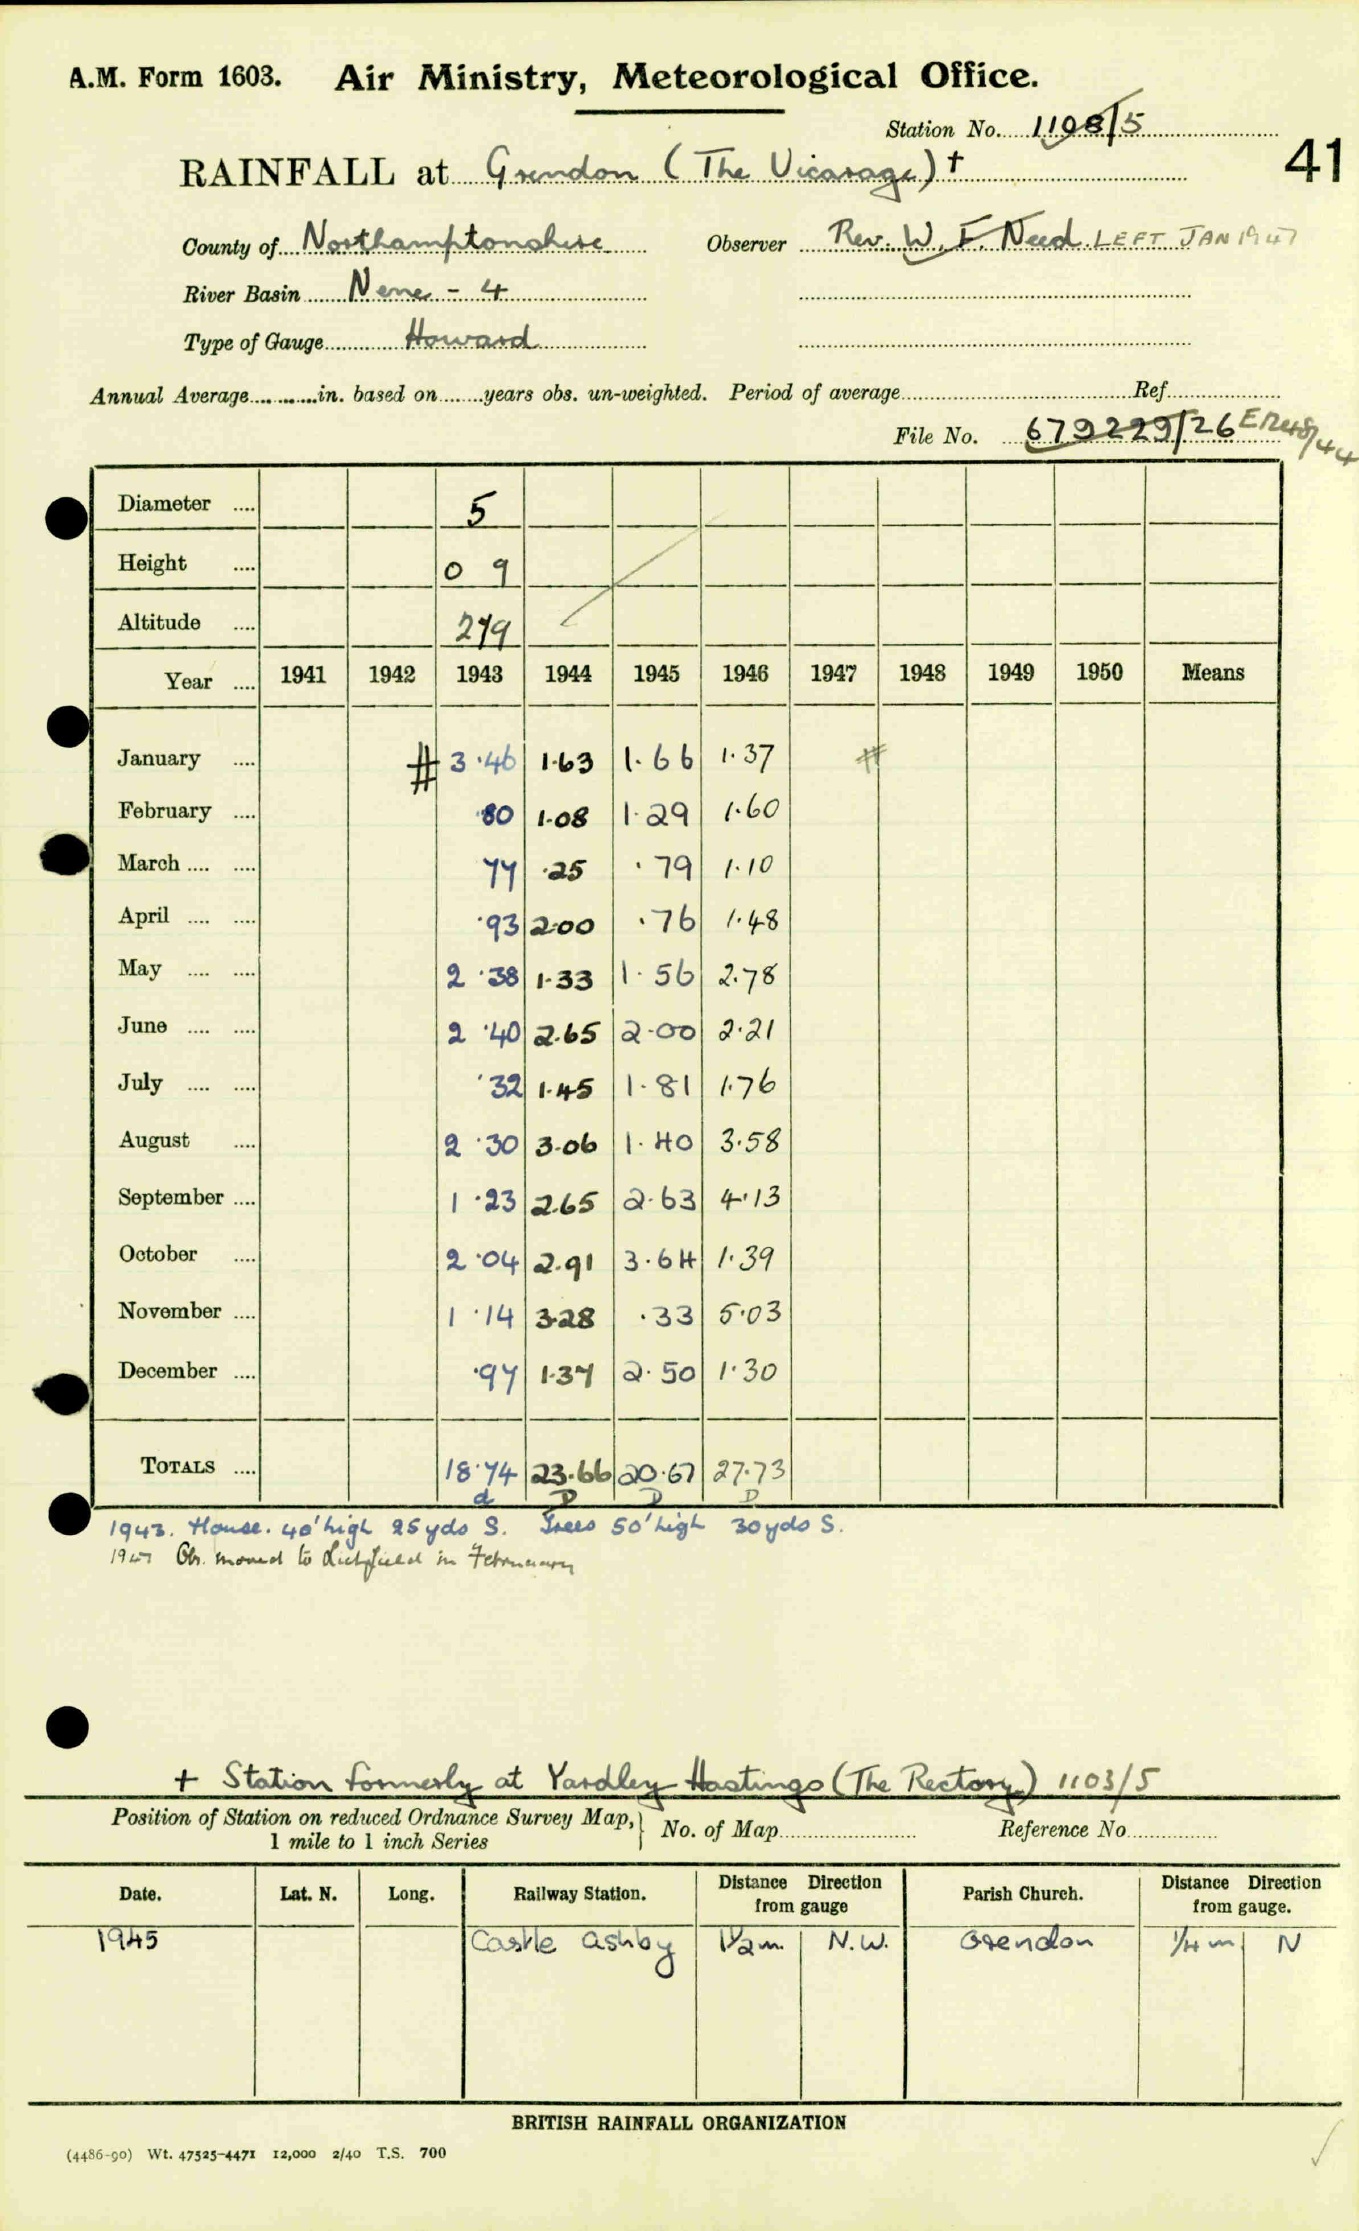 A.M. Form 1603. Air Ministry, Meteorological Office.
Station No. 1108/5
41
RAINFALL at Grendon (The Vicarage) †
County of Northamptonshire Observer Rev. W. F. Need. LEFT JAN 1947
River Basin Nene - 4
Type of Gauge Howard
Annual Average in. based on years obs. un-weighted. Period of average Ref.
File No. 679229/26
Diameter 5
Height 0 9
Altitude 279
Year 1941 1942 1943 1944 1945 1946 1947 1948 1949 1950 Means
January # 3·46 1·63 1·66 1·37 #
February ·80 1·08 1·29 1·60
March 77 ·25 ·79 1·10
April ·93 2·00 ·76 1·48
May 2·38 1·33 1·56 2·78
June 2·40 2·65 2·00 2·21
July ·32 1·45 1·81 1·76
August 2·30 3·06 1·40 3·58
September 1·23 2·65 2·63 4·13
October 2·04 2·91 3·64 1·39
November 1·14 3·28 ·33 5·03
December ·97 1·37 2·50 1·30
TOTALS 18·74 23·66 20·67 27·73
d D D D
1943. House. 40' high 25 yds S. Trees 50' high 30 yds S.
1947 Obs. moved to Lichfield in February
+ Station formerly at Yardley Hastings (The Rectory) 1103/5
Position of Station on reduced Ordnance Survey Map, 1 mile to 1 inch Series } No. of Map Reference No
Date. Lat. N. Long. Railway Station. Distance Direction from gauge Parish Church. Distance Direction from gauge.
1945 Castle Ashby 1½ m. N.W. Grendon ¼ m N
BRITISH RAINFALL ORGANIZATION
(4486-90) Wt. 47525-4471 12,000 2/40 T.S. 700